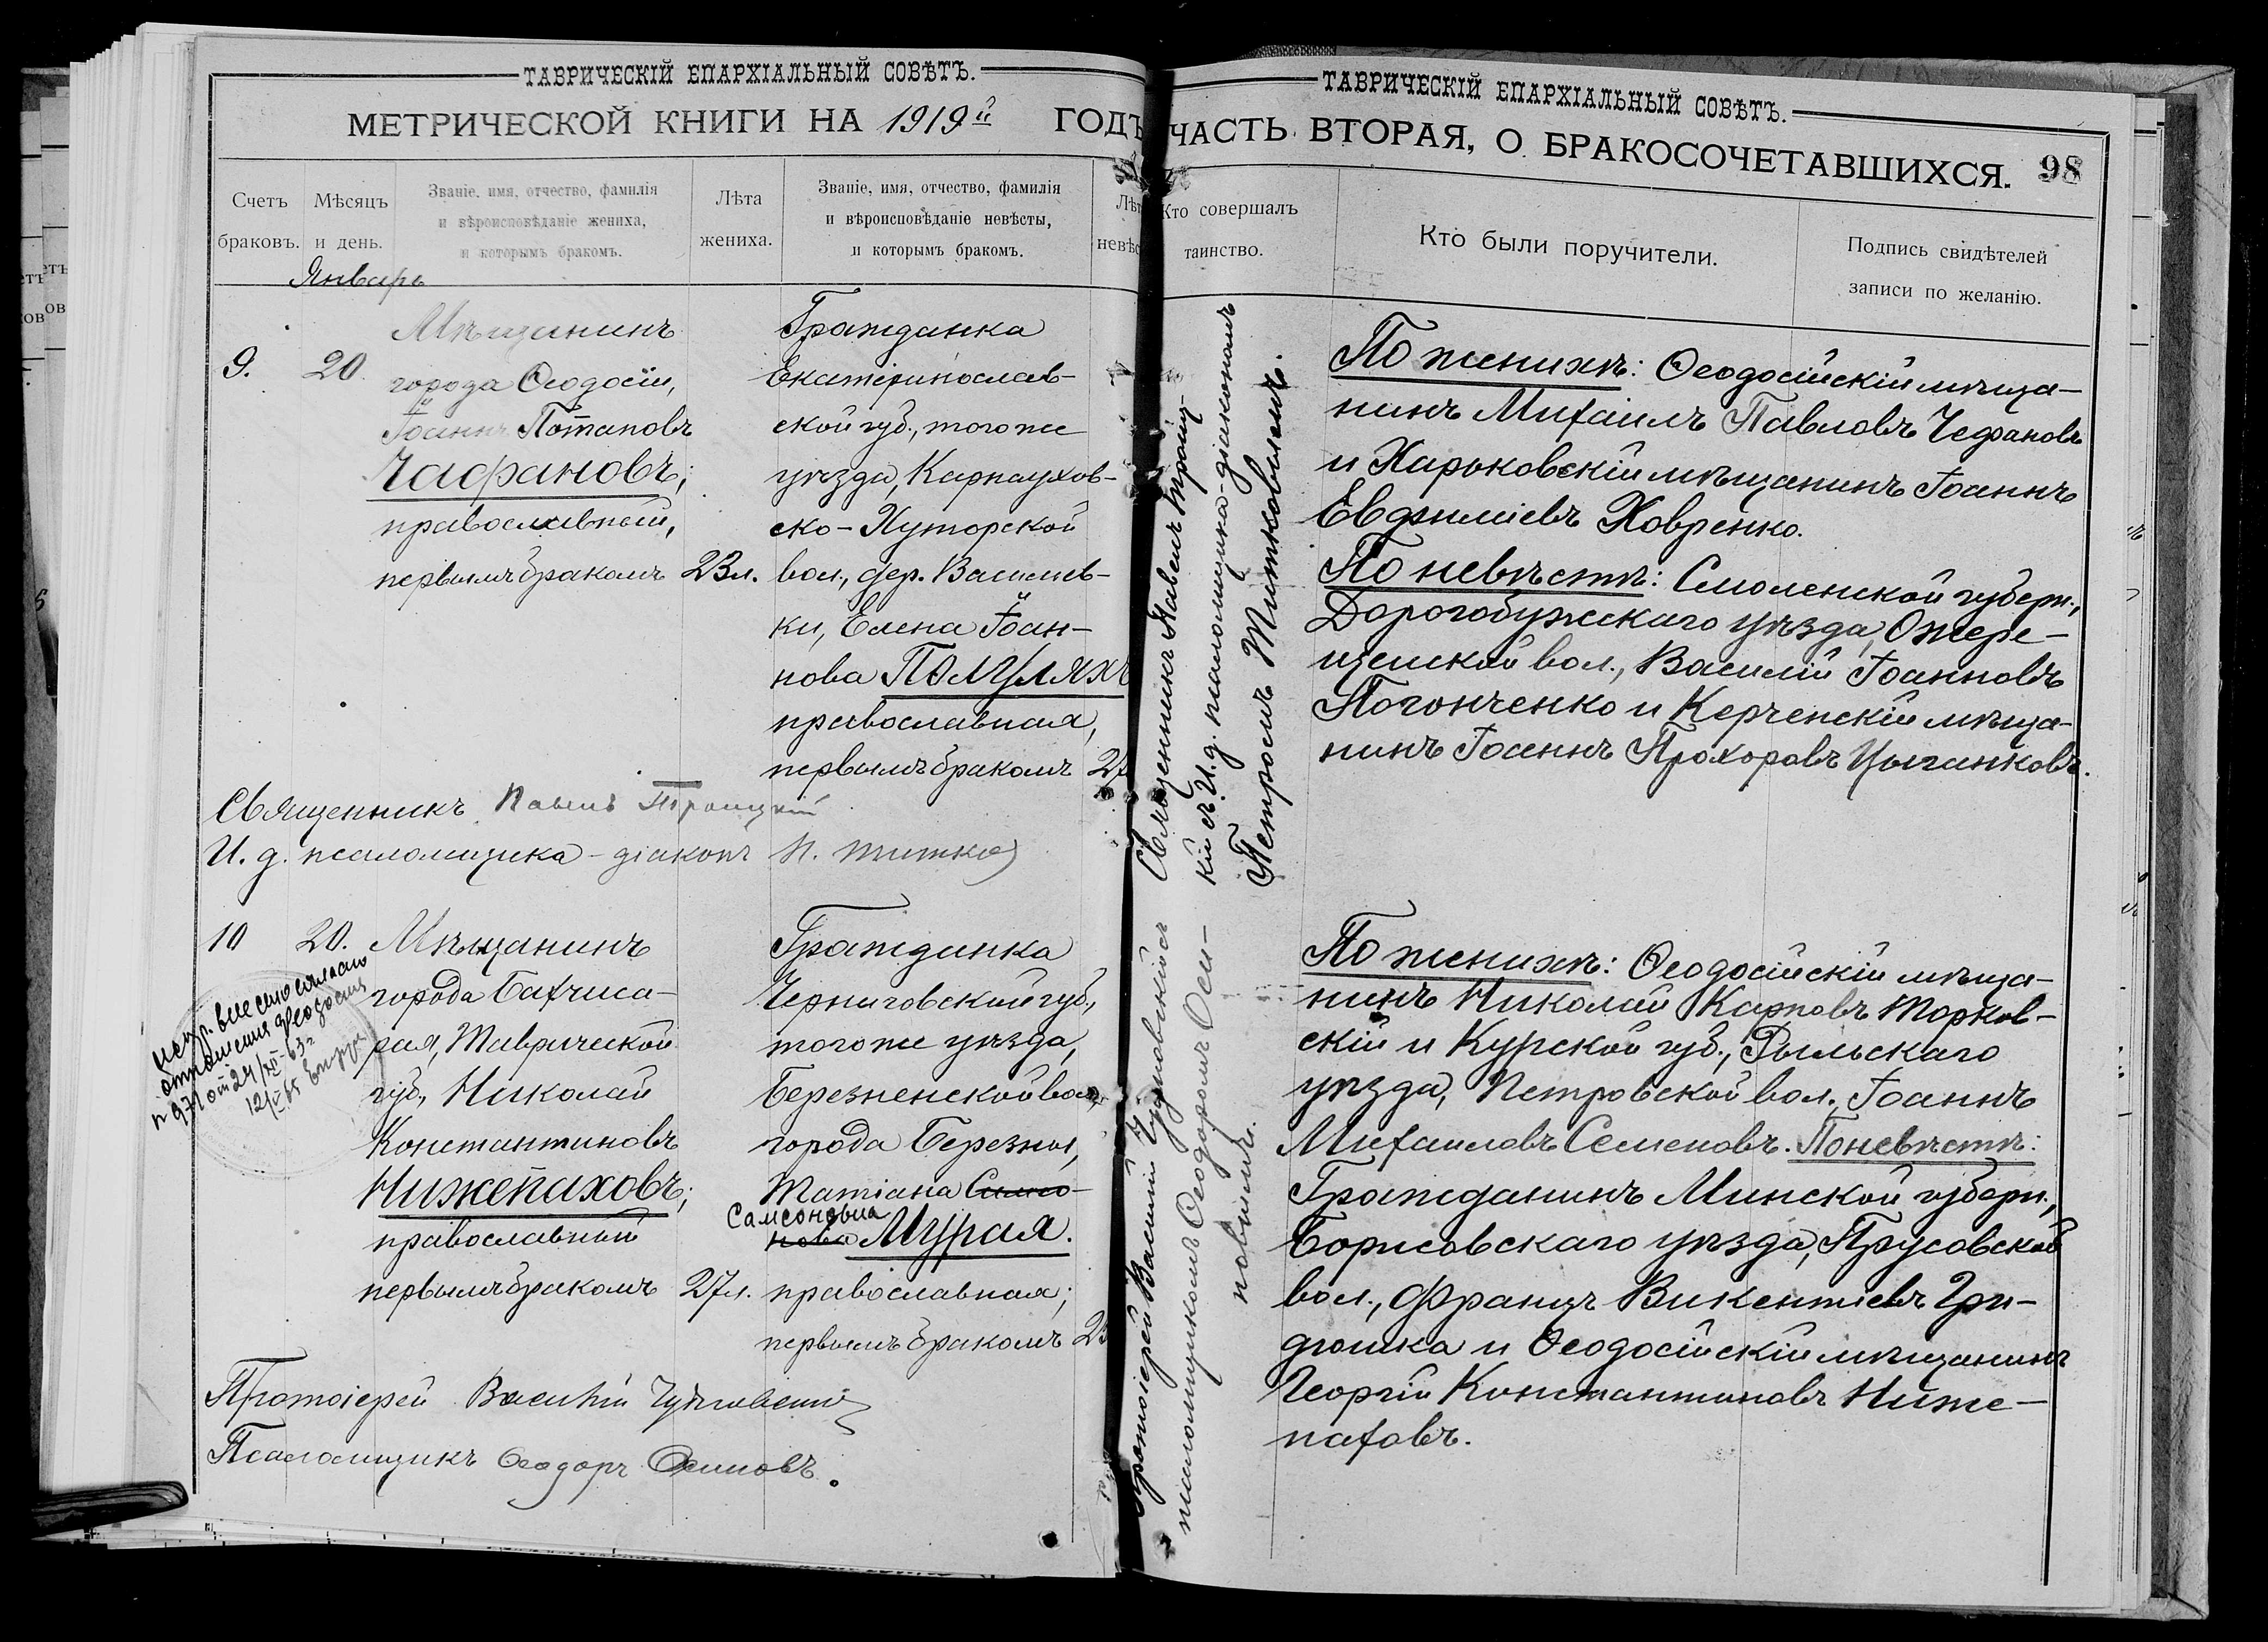 ТАВРИЧЕСКІЙ ЕПАРХІАЛЬНЫЙ СОВѢТЪ.
МЕТРИЧЕСКОЙ КНИГИ НА 1919й ГОДЪ
Счетъ браковъ.
Мѣсяцъ и день.
Званіе, имя, отчество, фамилія
и вѣроисповѣданіе жениха,
и которымъ бракомъ.
Лѣта
жениха.
Званіе, имя, отчество, фамилія
и вѣроисповѣданіе невѣсты,
и которымъ бракомъ.
Январь
9.
20
Мѣщанинъ
города Ѳеодосіи,
Іоаннъ Потаповъ
Чафрановъ;
православный,
первымъ бракомъ
23 л.
Гражданка
Екатеринослав-
ской губ., того же
уѣзда, Карнаухов-
ско-Хуторской
вол., дер. Василев-
ки, Елена Іоан-
нова Полуляхъ
православная,
первымъ бракомъ
Священникъ Павелъ Троицкій
И. д. псаломщика-діаконъ П. Титков
10
20.
Мѣщанинъ
города Бахчиса-
рая, Таврической
губ., Николай
Константиновъ
Нижепаховъ;
православный
первымъ бракомъ
27 л.
Гражданка
Черниговской губ.,
того же уѣзда,
Березненской вол.,
города Березны,
Татіана Симео-
Самсоновна
нова Мурая.
православная;
первымъ бракомъ
Испр. внесено согласно
отношения Феодосия
12/V 65
Протоіерей Василій Чудновскій
Псаломщикъ Ѳеодоръ Осиповъ.
ТАВРИЧЕСКІЙ ЕПАРХІАЛЬНЫЙ СОВѢТЪ.
ЧАСТЬ ВТОРАЯ, О БРАКОСОЧЕТАВШИХСЯ. 98
Кто совершалъ
таинство.
Кто были поручители.
Подпись свидѣтелей
записи по желанію.
Священникъ Павелъ Троиц-
кій съ И. д. псаломщика-діакономъ
Петромъ Титковымъ.
По женихѣ: Ѳеодосійскій мѣща-
нинъ Михаилъ Павловъ Чефрановъ
и Харьковскій мѣщанинъ Іоаннъ
Евфиміевъ Ховренко.
По невѣстѣ: Смоленской губерн.,
Дорогобужскаго уѣзда, Ожере-
щенской вол., Василій Іоанновъ
Погонченко и Керченскій мѣща-
нинъ Іоаннъ Прохоровъ Цыганковъ.
Протоіерей Василій Чудновскій съ
псаломщикомъ Ѳеодоромъ Оси-
повымъ.
По женихѣ: Ѳеодосійскій мѣща-
нинъ Николай Карповъ Торков-
скій и Курской губ., Рыльскаго
уѣзда, Петровской вол., Іоаннъ
Михаиловъ Семеновъ. По невѣстѣ:
Гражданинъ Минской губерн.,
Борисовскаго уѣзда, Прусовской
вол., Францъ Викентіевъ Гри-
дюшка и Ѳеодосійскій мѣщанинъ
Георгій Константиновъ Ниже-
паховъ.